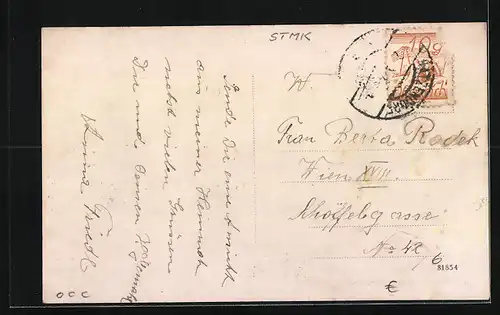 STMK
Sende Dir eine Ansicht
aus meiner Heimat
nebst vielen Grüssen
Dir und Deinen
Anna Friedl
W.
Frau Berta Rodek
Wien XVIII.
Schöffelgasse
No 42
6
81854
€
10g